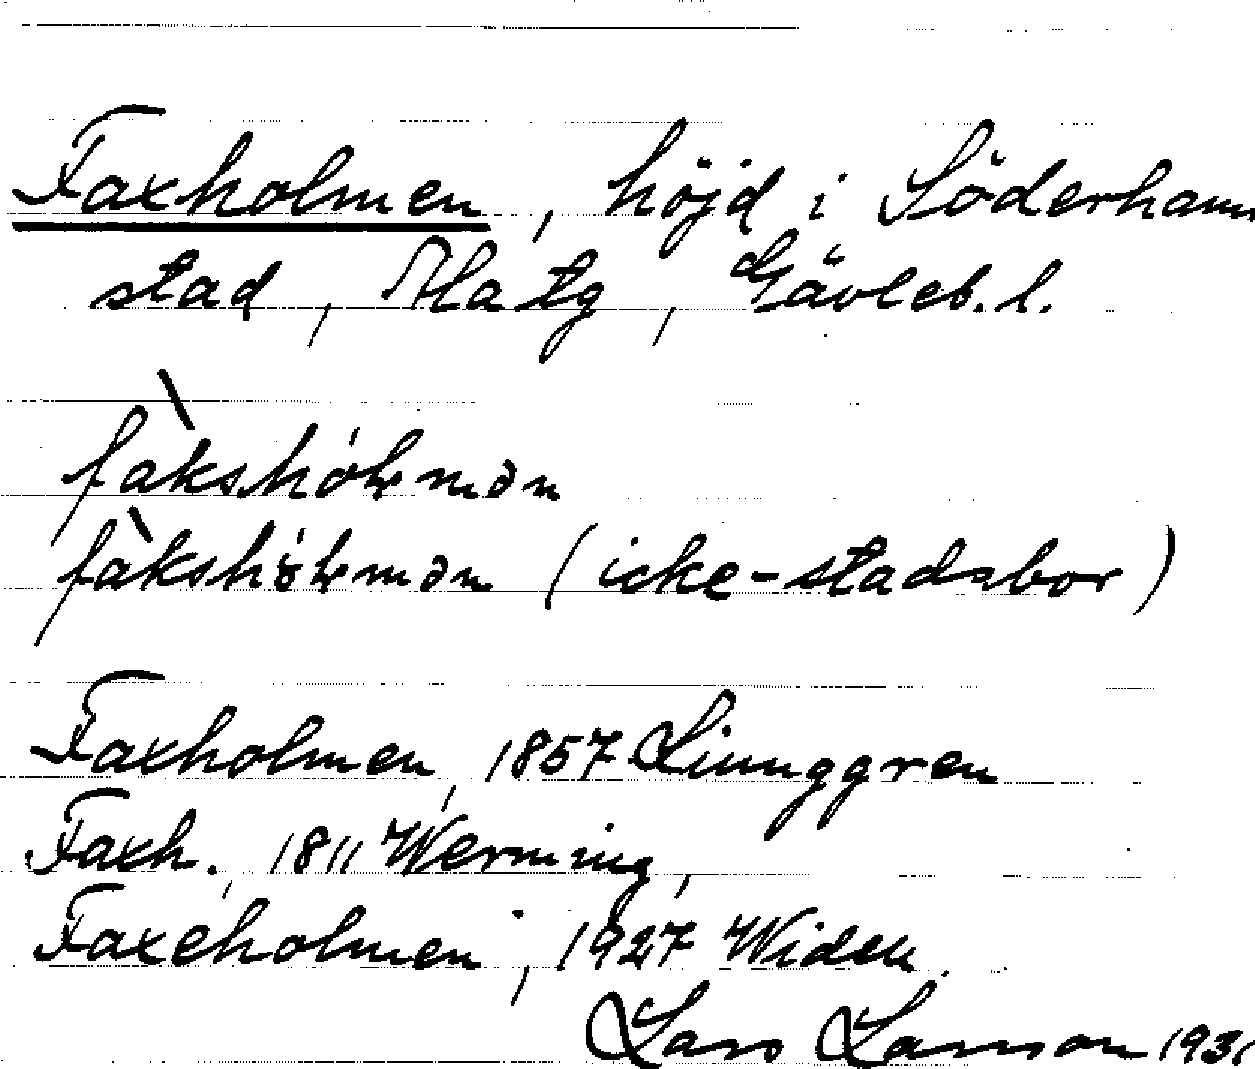 Faxholmen, höjd i Söderhamn
stad, Ala tg, Gävleb. l.
fàkshólmən
fàkshö́lmən (icke-stadsbor)
Faxholmen, 1857 Ljunggren
Faxh., 1811 Werming,
Faxeholmen, 1927 Widen.
Lars Larsson 1931